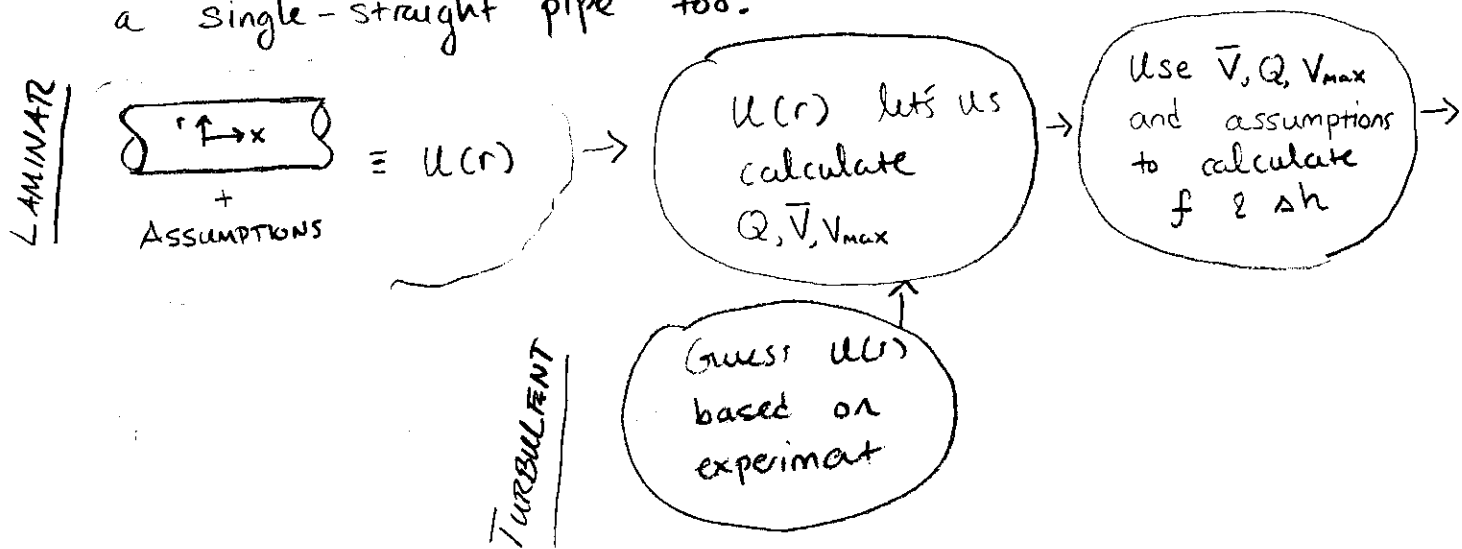 a single-straight pipe too.
LAMINAR
r x
≡ u(r)
+
ASSUMPTIONS
→
u(r) let's us
calculate
Q, V̅, Vmax
→
Use V̅, Q, VMax
and assumptions
to calculate
f & Δh
→
TURBULENT
Guess u(r)
based on
experimat